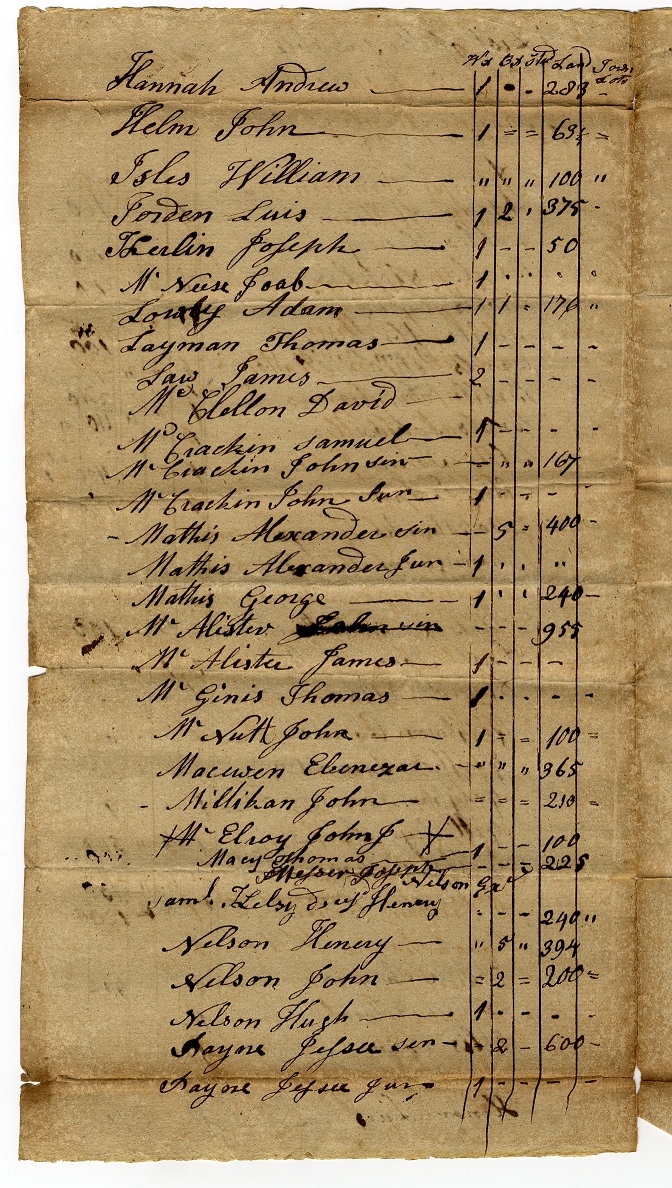 Wd Bd Std Land Town Lots
Hannah Andrew — 1 - - 283 -
Helm John — 1 = = 63¼ =
Isles William — " " " 100 "
Jorden Luis — 1 2 " 375 -
Kerlin Joseph — 1 - - 50
Mc Neese Joab — 1 " " " "
Lowry Adam — 1 1 - 176 "
Layman Thomas — 1 - - - -
Law James — 2 - - - -
Mc Clellon David —
Mc Crackin Samuel — 1 - - -
Mc Crackin John sin — - " " 167
Mc Crackin John Jun — 1 - - - -
- Mathis Alexander sin — 5 = 400 -
Mathis Alexander Jun — 1 " " "
Mathis George — 1 " " 240 -
Mc Alister John sin - - - 955
Mc Alister James — 1 - - -
Mc Ginis Thomas — 1 - - - -
Mc Nutt John — 1 = = 100 =
Macewen Ebenezar - " " " 365
- Millikan John — = = = 210 =
Mc Elroy John J 1 - - 100
Macy Thomas - - - 225
Messer Joseph
Nelson Exr
Saml. Kelsy decsd Henery - - - 240 "
Nelson Henery — " 5 " 394
Nelson John — = 2 = 200 =
Nelson Hugh — 1 - - - -
Frayne Jessee sen - - 2 - 600 -
Frayne Jessee Jun 1 - - - -